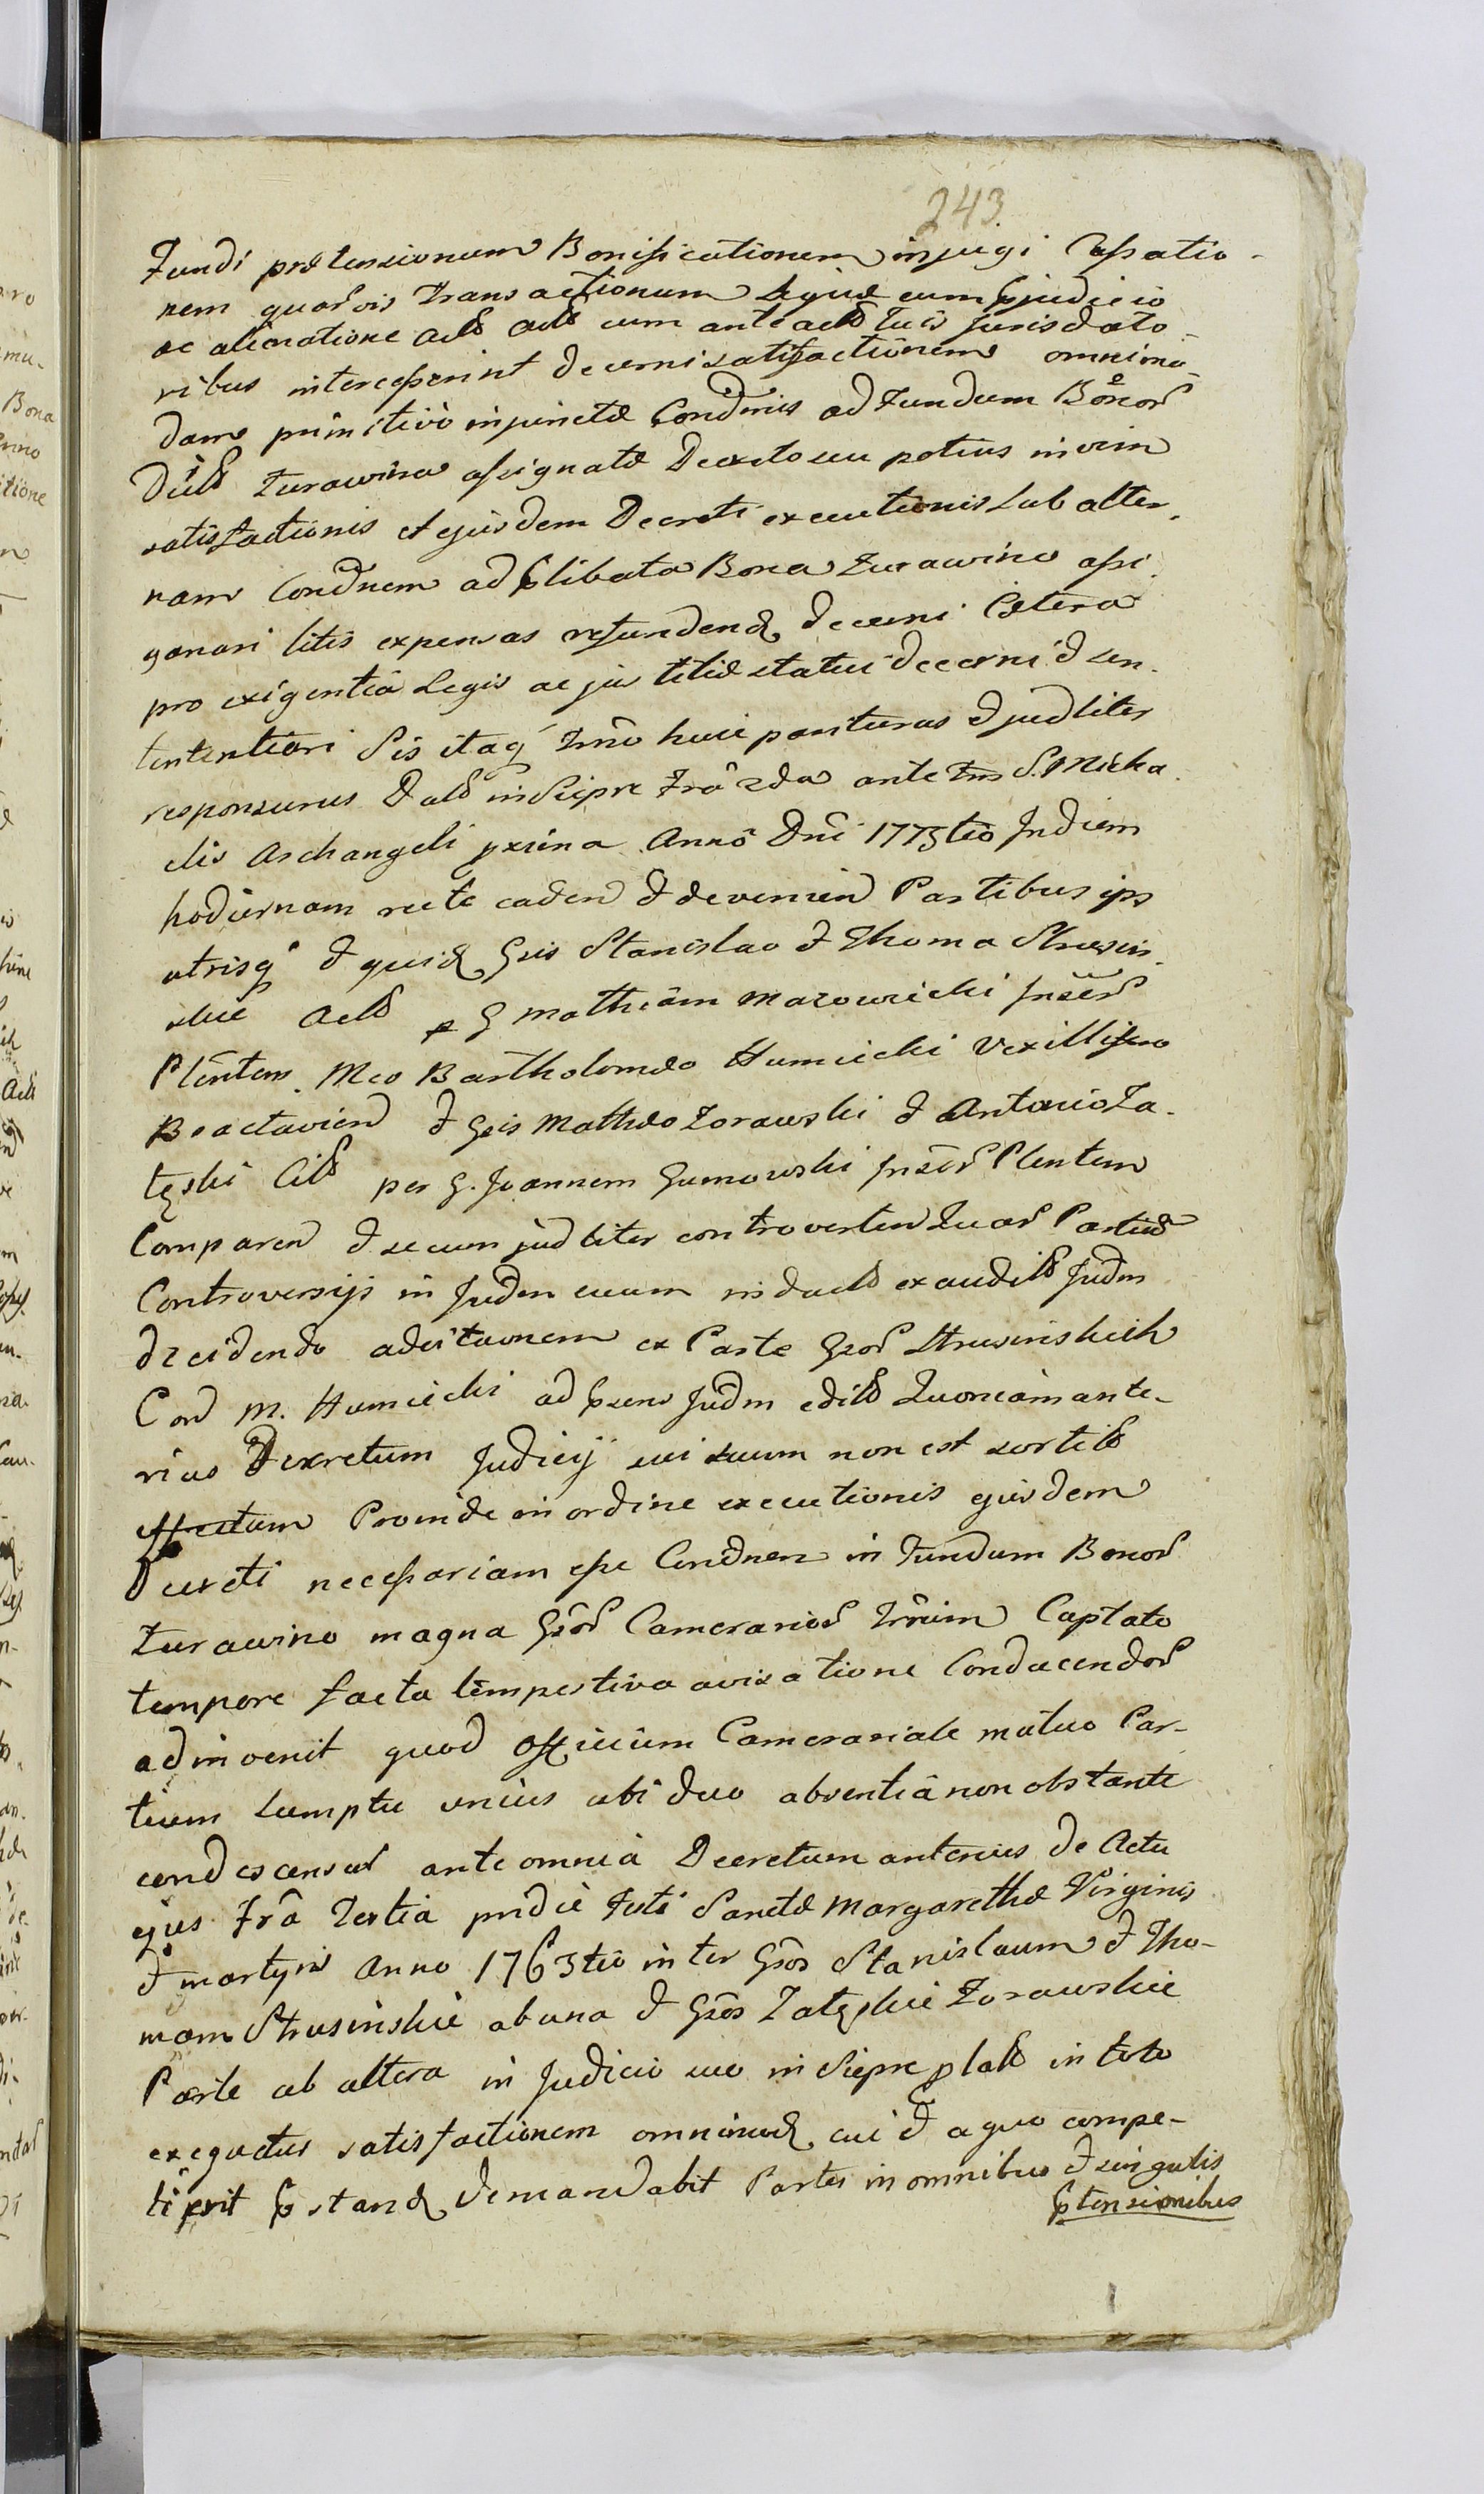 243.
Fundi prætensionum Bonificationem injugi Cassatio-
nem quarvis transactionum siquæ cum pjudicio
ac alienatione actt actt cum anteactt suis jurisdato-
ribus intercesserint decerni satisfactionem omnimo-
dam primitivo injunctæ Condnis ad Fundum Bonor
Dictt Zurawino assignatæ Decreto seu potius in vim
satisfactionis et ejusdem Decreti executionis sub alter-
nam Condnem ad plibata Bona Zurawino assi-
gnari litis expensas refundend decerni Cætera
pro exigentia Legis ac jur titid statui decerni & sen-
tentiari Sis itaq Trno huic pariturus & judliter
responsurus Datt in Siepre Fra 2da ante Fm S. Micha-
elis Archangeli pxima Anno Dni 1773tio Indiem
hodiernam recte caden & devenien Partibus ips
utrisq & quid Gsis Stanislao & Thoma Strusin-
skie Actt p G Mathiam Mazowiecki Inser
Plentem. Mco Bartholomæo Humiecki Vexillifero
Bractavien & Gsis Mathæo Zorawski & Antonio Za-
tęski Citt per G. Joannem Gumowski Inser Plentem
Comparen & secum judliter controverten Quar Partium
Controversijs in Judm suum inductt exauditt Judm
decidendo adcitaonem ex Parte Gsor Strusinskich
Con M. Humiecki ad psens Judm editt Quoniam ante-
rius Decretum Judicij sui suum non est sortitt
effectum Proinde in ordine executionis ejusdem
Decreti necessariam esse Condnem in Fundum Bonor
Zurawino magna Gsor Camerarior Trrium Captato
tempore facta tempestiva avisatione Conducendor
adinvenit quod Officium Camerariale mutuo Par-
tium sumptu unius ubi duo absentia non obstante
condescensur ante omnia Decretum anterius de Actu
ejus Fra Tertia pridie Festi Sanctæ Margarethæ Virginis
& Martyris Anno 1763tio inter Gsos Stanislaum & Tho-
mam Strusinskie ab una & Gsos Zatęskie Zorawskie
Parte ab altera in Judicio suo in Siepre platt in toto
exequetur satisfactionem omnimod cui & a quo compe-
tierit pstand demandabit Partes in omnibus & singulis
ptensionibus